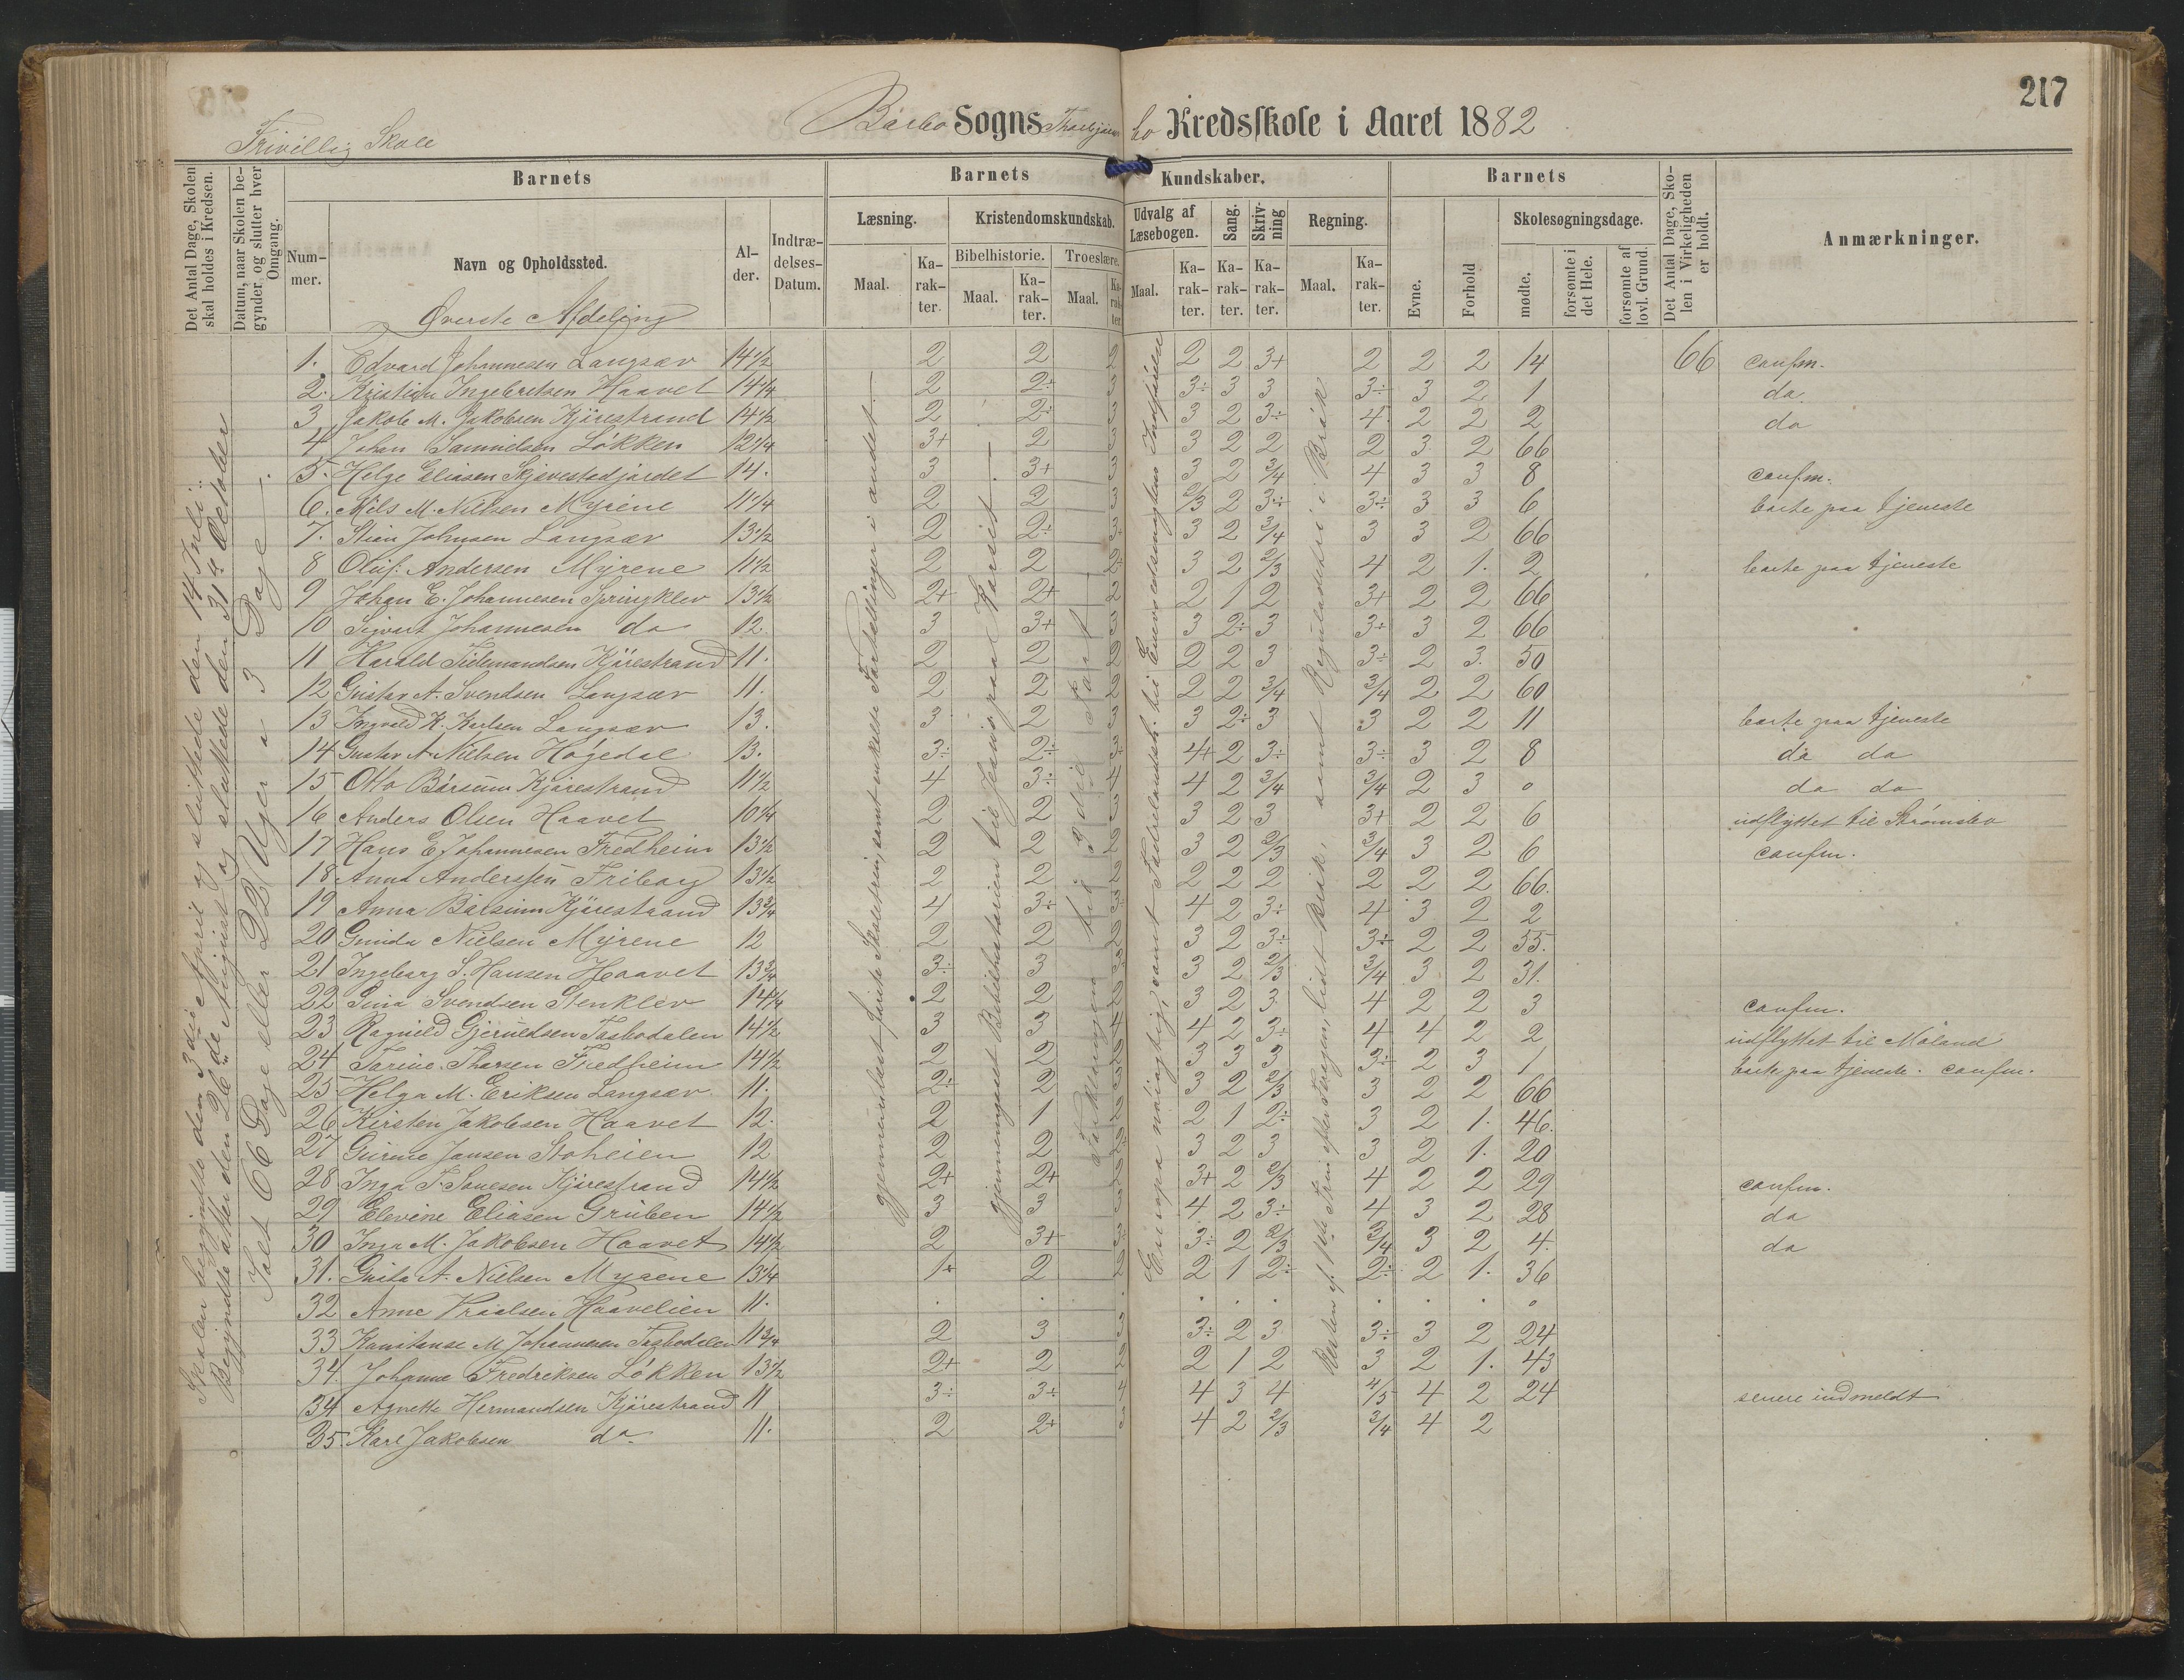 217
Frivillig Skole
Barbo Sogns Thorbjørnsbo Kredsskole i Aaret 1882
Det Antal Dage, Skolen skal holdes i Kredsen.
Datum, naar Skolen begynder, og slutter hver Omgang.
Barnets
Nummer.
Navn og Opholdssted.
Alder.
Indtrædelses-Datum.
Barnets Kundskaber.
Læsning.
Maal.
Karakter.
Kristendomskundskab.
Bibelhistorie.
Maal.
Karakter.
Troeslære.
Maal.
Karakter
Udvalg af Læsebogen.
Maal.
Karakter.
Sang.
Karakter.
Skrivning
Karakter.
Regning.
Maal.
Karakter.
Barnets
Evne.
Forhold
Skolesøgningsdage.
mødte.
forsømte i det Hele.
forsømte af lovl. Grund.
Det Antal Dage, Skolen i Virkeligheden er holdt.
Anmærkninger.
Øverste Afdeling
Skolen begyndte den 3die April og sluttede den 14 Juli.
Begyndte atter den 26de August og sluttede den 31te October
Ialt 66 Dage eller 22 Uger a 3 Dage
gjennemlæst første Skoletrin, samt enkelte Fortællinger i andet.
gjennemgaaet Bibelhistorien til Jesus paa Korset.
Forklaringen til 3die Part
1. Edvard Johannesen Langsæv 14 1/2 2 2 2 2 2 3+ 2 2 2 14 66 confm.
2. Kristian Ingebretsen Haavet 14 1/4 2 2÷ 3 3÷ 3 3 3÷ 3 2 1 do.
3 Jakob M. Jakobsen Kjørestrand 14 1/2 2 2÷ 3 3 2 3÷ 4 2 2 2 do
4 Johan Samuelsen Løkken 12 1/4 3+ 2 3 3 2 2 2 3 2 66
5. Helge Eliasen Skjævestadjordet 14. 3 3+ 3 3 2 3/4 4 3 3 8 confm.
6. Nils M. Nielsen Myrene 11 1/4 2 2 3 2/3 2 3÷ 3÷ 3 3 6 borte paa tjeneste
7. Stian Johnsen Langsæv 13 1/2 2 2÷ 3 3 2 3/4 3 3 2 66
8 Oluf Andersen Myrene 11 1/2 2 2 2 3 2 2/3 4 2 1. 2 borte paa tjeneste
9 Johan E. Johannesen Springklev 13 1/2 2+ 2+ 2 2 1 2 3+ 2 2 66
10 Sigvart Johannesen do 12. 3 3+ 3 3 2÷ 3 3÷ 3 2 66
11 Harald Tidemandsen Kjørestrand 11. 2 2 2 2 2 3 3÷ 2 3. 50
12 Gustav A. Svendsen Langsæv 11. 2 2 2 2 2 3/4 3/4 2 2 60
13 Ingvald K. Karlsen Langsæv 13. 3 2 3 3 2÷ 3 3 2 2 11 borte paa tjeneste
14 Gustav A. Nielsen Høgedal 13. 3÷ 2÷ 3 4+ 2 3÷ 3÷ 3 2 8 do do
15 Otto Børsum Kjørestrand 11 1/2 4 3÷ 4 4 2 3/4 3/4 2 3 0 do do
16 Anders Olsen Haavet 10 1/4 2 2 3 3 2 3 3+ 2 2 6 udflyttet til Strømsbo
17 Hans E. Johannesen Fredheim 13 1/2 2 2 2 3 2 2/3 3/4 3 2 6 confm.
18 Anna Anderssen Friborg 13 1/2 2 2 2 2 2 2 2 2 2 66.
19 Anna Børsum Kjørestrand 13 3/4 4 3÷ 3 4 2 3÷ 4 3 2 2
20 Gunda Nielsen Myrene 12 2 2 2 3 2 3÷ 3÷ 2 2 55.
21 Ingeborg S. Hansen Haavet 13 3/4 3÷ 3 3 3 2 2/3 3/4 3 2 31.
22 Gina Svendsen Stenklev 14 1/4 2 2 2 3 2 3 4 2 2 3 confm.
23 Ragnild Gjeruldsen Tasbodalen 14 1/2 3 3 4 4 2 3÷ 4 4 2 2 udflyttet til Moland
24 Torine Thorsen Fredheim 14 1/2 2 2 2 3 3 3 3÷ 2 3 1 borte paa tjeneste. confm.
25 Helga M. Eriksen Langsæv 11. 2÷ 2 2 3 2 2/3 3 2 2 66
26 Kirsten Jakobsen Haavet 12. 2 1 2 2 1 2÷ 3 2 1. 46.
27 Gurine Jansen Stoheien 12 2 2 2 3 2 3 3 2 1. 20
28 Inga T. Tønesen Kjørestrand 14 1/2 2+ 2+ 2 3+ 2 2/3 4 2 2 29 confm.
29 Elevine Eliasen Gruben 14 1/2 3 3 3 4 2 3÷ 4 3 2 28 do
30 Inga M. Jakobsen Haavet 14 1/2 2 3+ 3 3÷ 2 2/3 3/4 3 2 4. do
31. Gusta A. Nielsen Myrene 13 1/4 1÷ 2 2 2 1 2÷ 2÷ 2 1. 36
32 Anne Kraalsen Haavelien 11. . . . . . . . . . 0
33 Konstanse M Johannesen Tasbodalen 11 3/4 2 3 3 3÷ 2 3 3÷ 3 2 24
34. Johanne Fredriksen Løkken 13 1/2 2+ 2 2 2 1 2 3 2 1. 43
34 Agnette Hermandsen Kjørestrand 11 3÷ 3÷ 4 4 3 4 4/5 4 2 24 senere indmeldt
35. Karl Jakobsen do 11. 2 2+ 3 4 2 2/3 3/4 4 2
Europa nøiagtig, samt Fædrelandsh. til Eneveldsmagtens Indførelse
Resten af 1ste Trin efter Fragen, lidt Brøk, samt Reguladetri i Brøk